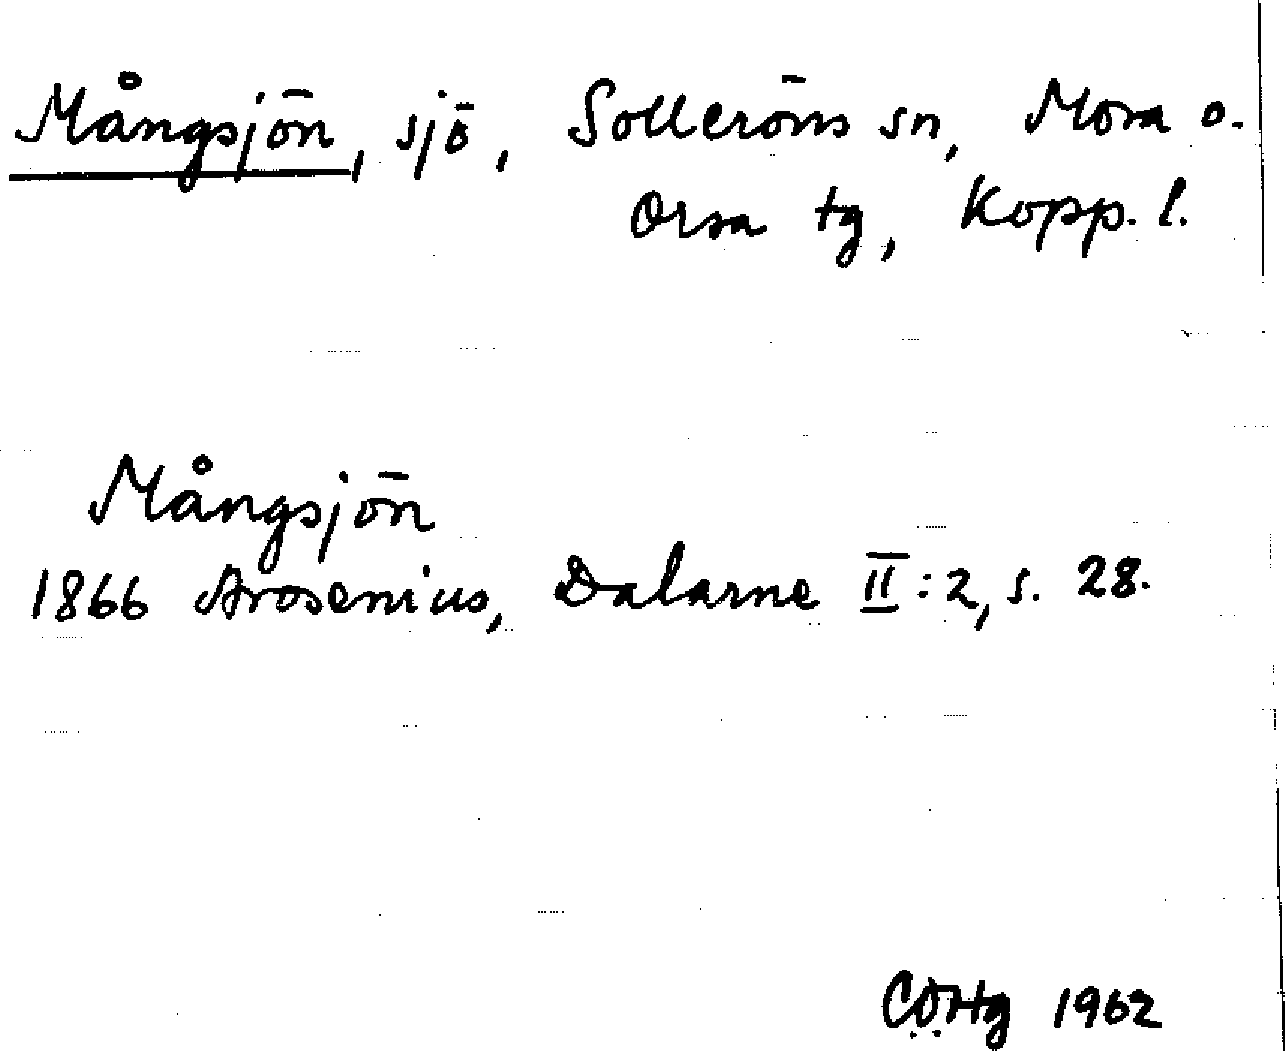 Mångsjön, sjö, Solleröns sn, Mora o.
Orsa tg, Kopp. l.
Mångsjön
1866 Arosenius, Dalarne II:2, s. 28.
1962